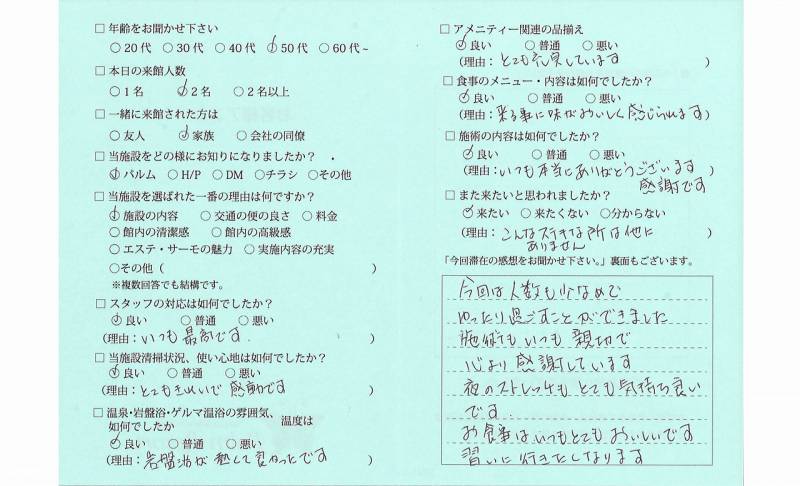 □ 年齢をお聞かせ下さい
○20代 ○30代 ○40代 ○50代 ○60代~
□ 本日の来館人数
○1名 ○2名 ○2名以上
□ 一緒に来館された方は
○友人 ○家族 ○会社の同僚
□ 当施設をどの様にお知りになりましたか?
○パルム ○H/P ○DM ○チラシ ○その他
□ 当施設を選ばれた一番の理由は何ですか?
○施設の内容 ○交通の便の良さ ○料金
○館内の清潔感 ○館内の高級感
○エステ・サーモの魅力 ○実施内容の充実
○その他( )
※複数回答でも結構です。
□ スタッフの対応は如何でしたか?
○良い ○普通 ○悪い
(理由:いつも最高です. )
□ 当施設清掃状況、使い心地は如何でしたか?
○良い ○普通 ○悪い
(理由:とてもきれいで感動です )
□ 温泉・岩盤浴・ゲルマ温浴の雰囲気、温度は
如何でしたか
○良い ○普通 ○悪い
(理由:岩盤浴が熱して良かったです )
□ アメニティー関連の品揃え
○良い ○普通 ○悪い
(理由:とても充実しています )
□ 食事のメニュー・内容は如何でしたか?
○良い ○普通 ○悪い
(理由:来る事に味がおいしく感じられます )
□ 施術の内容は如何でしたか?
○良い ○普通 ○悪い
(理由:いつも本当にありがとうございます
感謝です )
□ また来たいと思われましたか?
○来たい ○来たくない ○分からない
(理由:こんなステキな所は他に
ありません )
「今回滞在の感想をお聞かせ下さい。」裏面もございます。
今回は人数も少なめで
ゆったり過ごすことができました
施術もいつも親切で
心より感謝しています
夜のストレッチもとても気持ち良い
です.
お食事はいつもとてもおいしいです
習いに行きたくなります